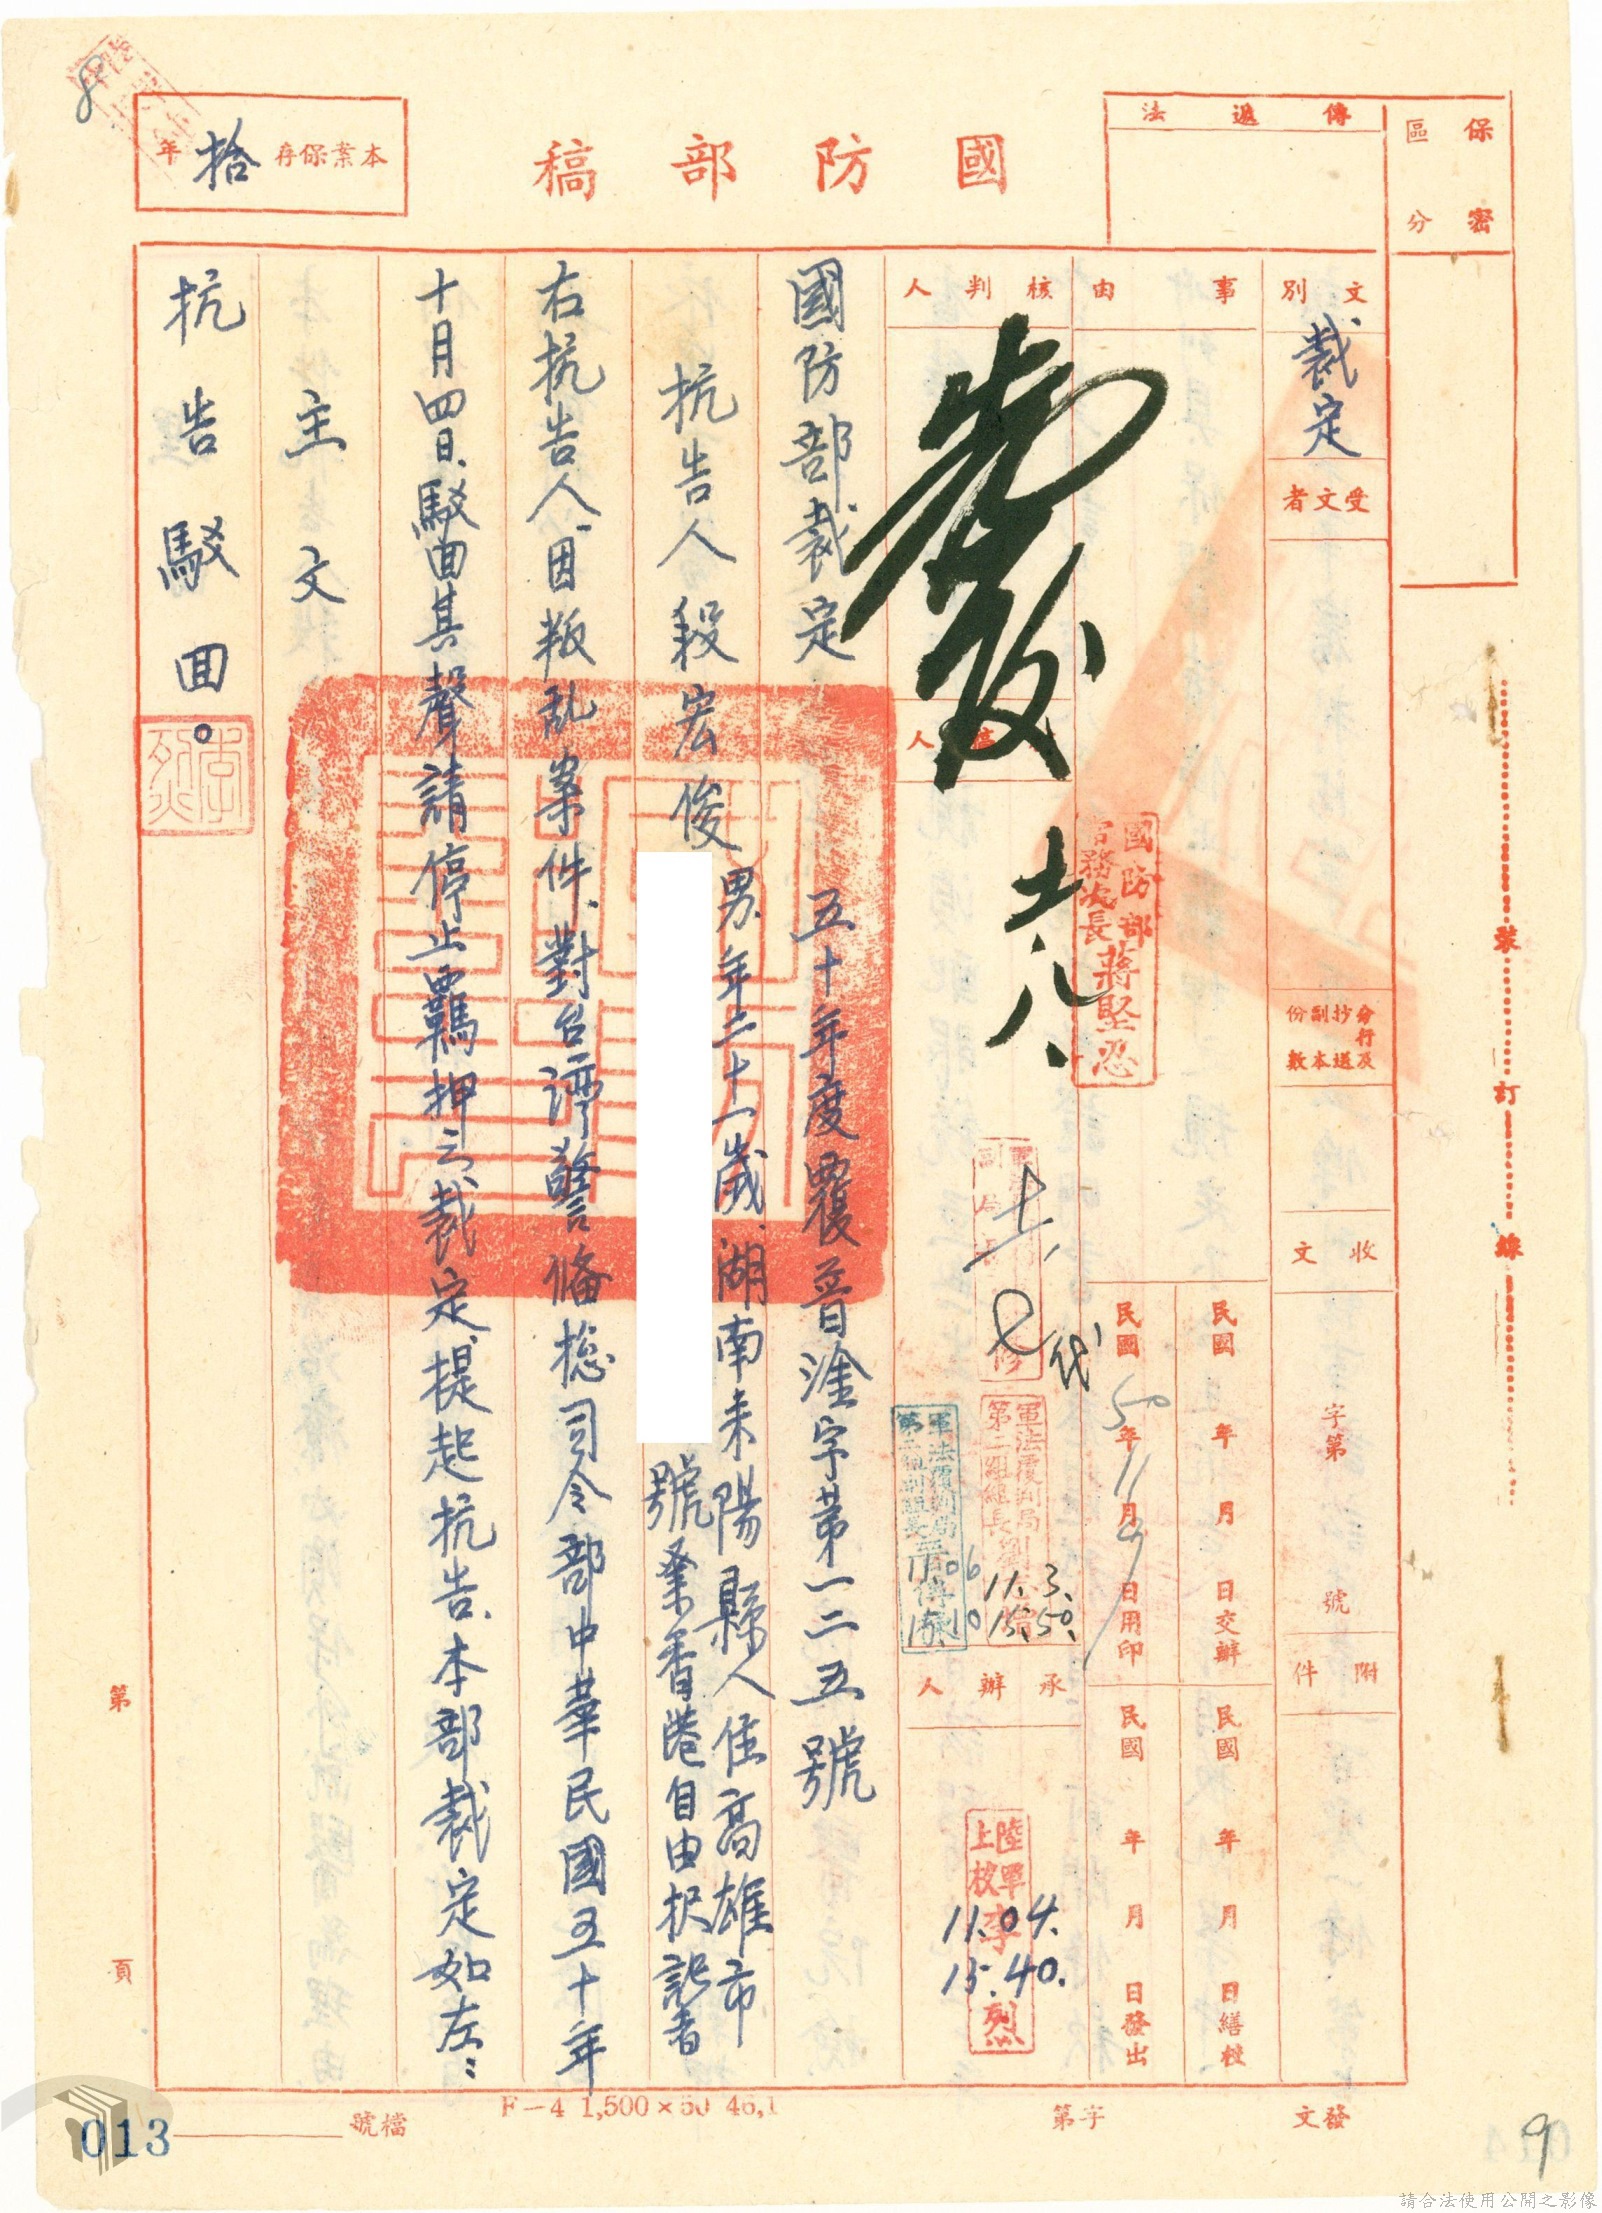 國防部稿
保密
區分
傳遞法
本案保存拾年
文別
裁定
受文者
分行及抄送副本份數
收文
字第
號
附件
事由
民國
年
月
日交辦
民國
年
月
日繕校
民國50年11月9日用印
民國
年
月
日發出
核判人
發
十一、八、
國防部
常務次長
蔣堅忍
十一、七代
軍法覆判局
11.3.
15.50.
11.06
15.10
承辦人
陸軍
上校
李烈
11.04.
15.40.
國防部裁定
五十年度覆普淦字第一二五號
抗告人殺宏俊
男年二十一歲、湖南耒陽縣人住高雄市
號業香港自由报記者
右抗告人、因叛乱案件、對台湾警備總司令部中華民國五十年
十月四日、駁回其聲請停止羈押之裁定、提起抗告、本部裁定如左：
主文
抗告駁回。
李烈
裝
訂
線
第
頁
檔號
F-4 1,500×50 46,1
字第
發文
013
8
9
請合法使用公開之影像